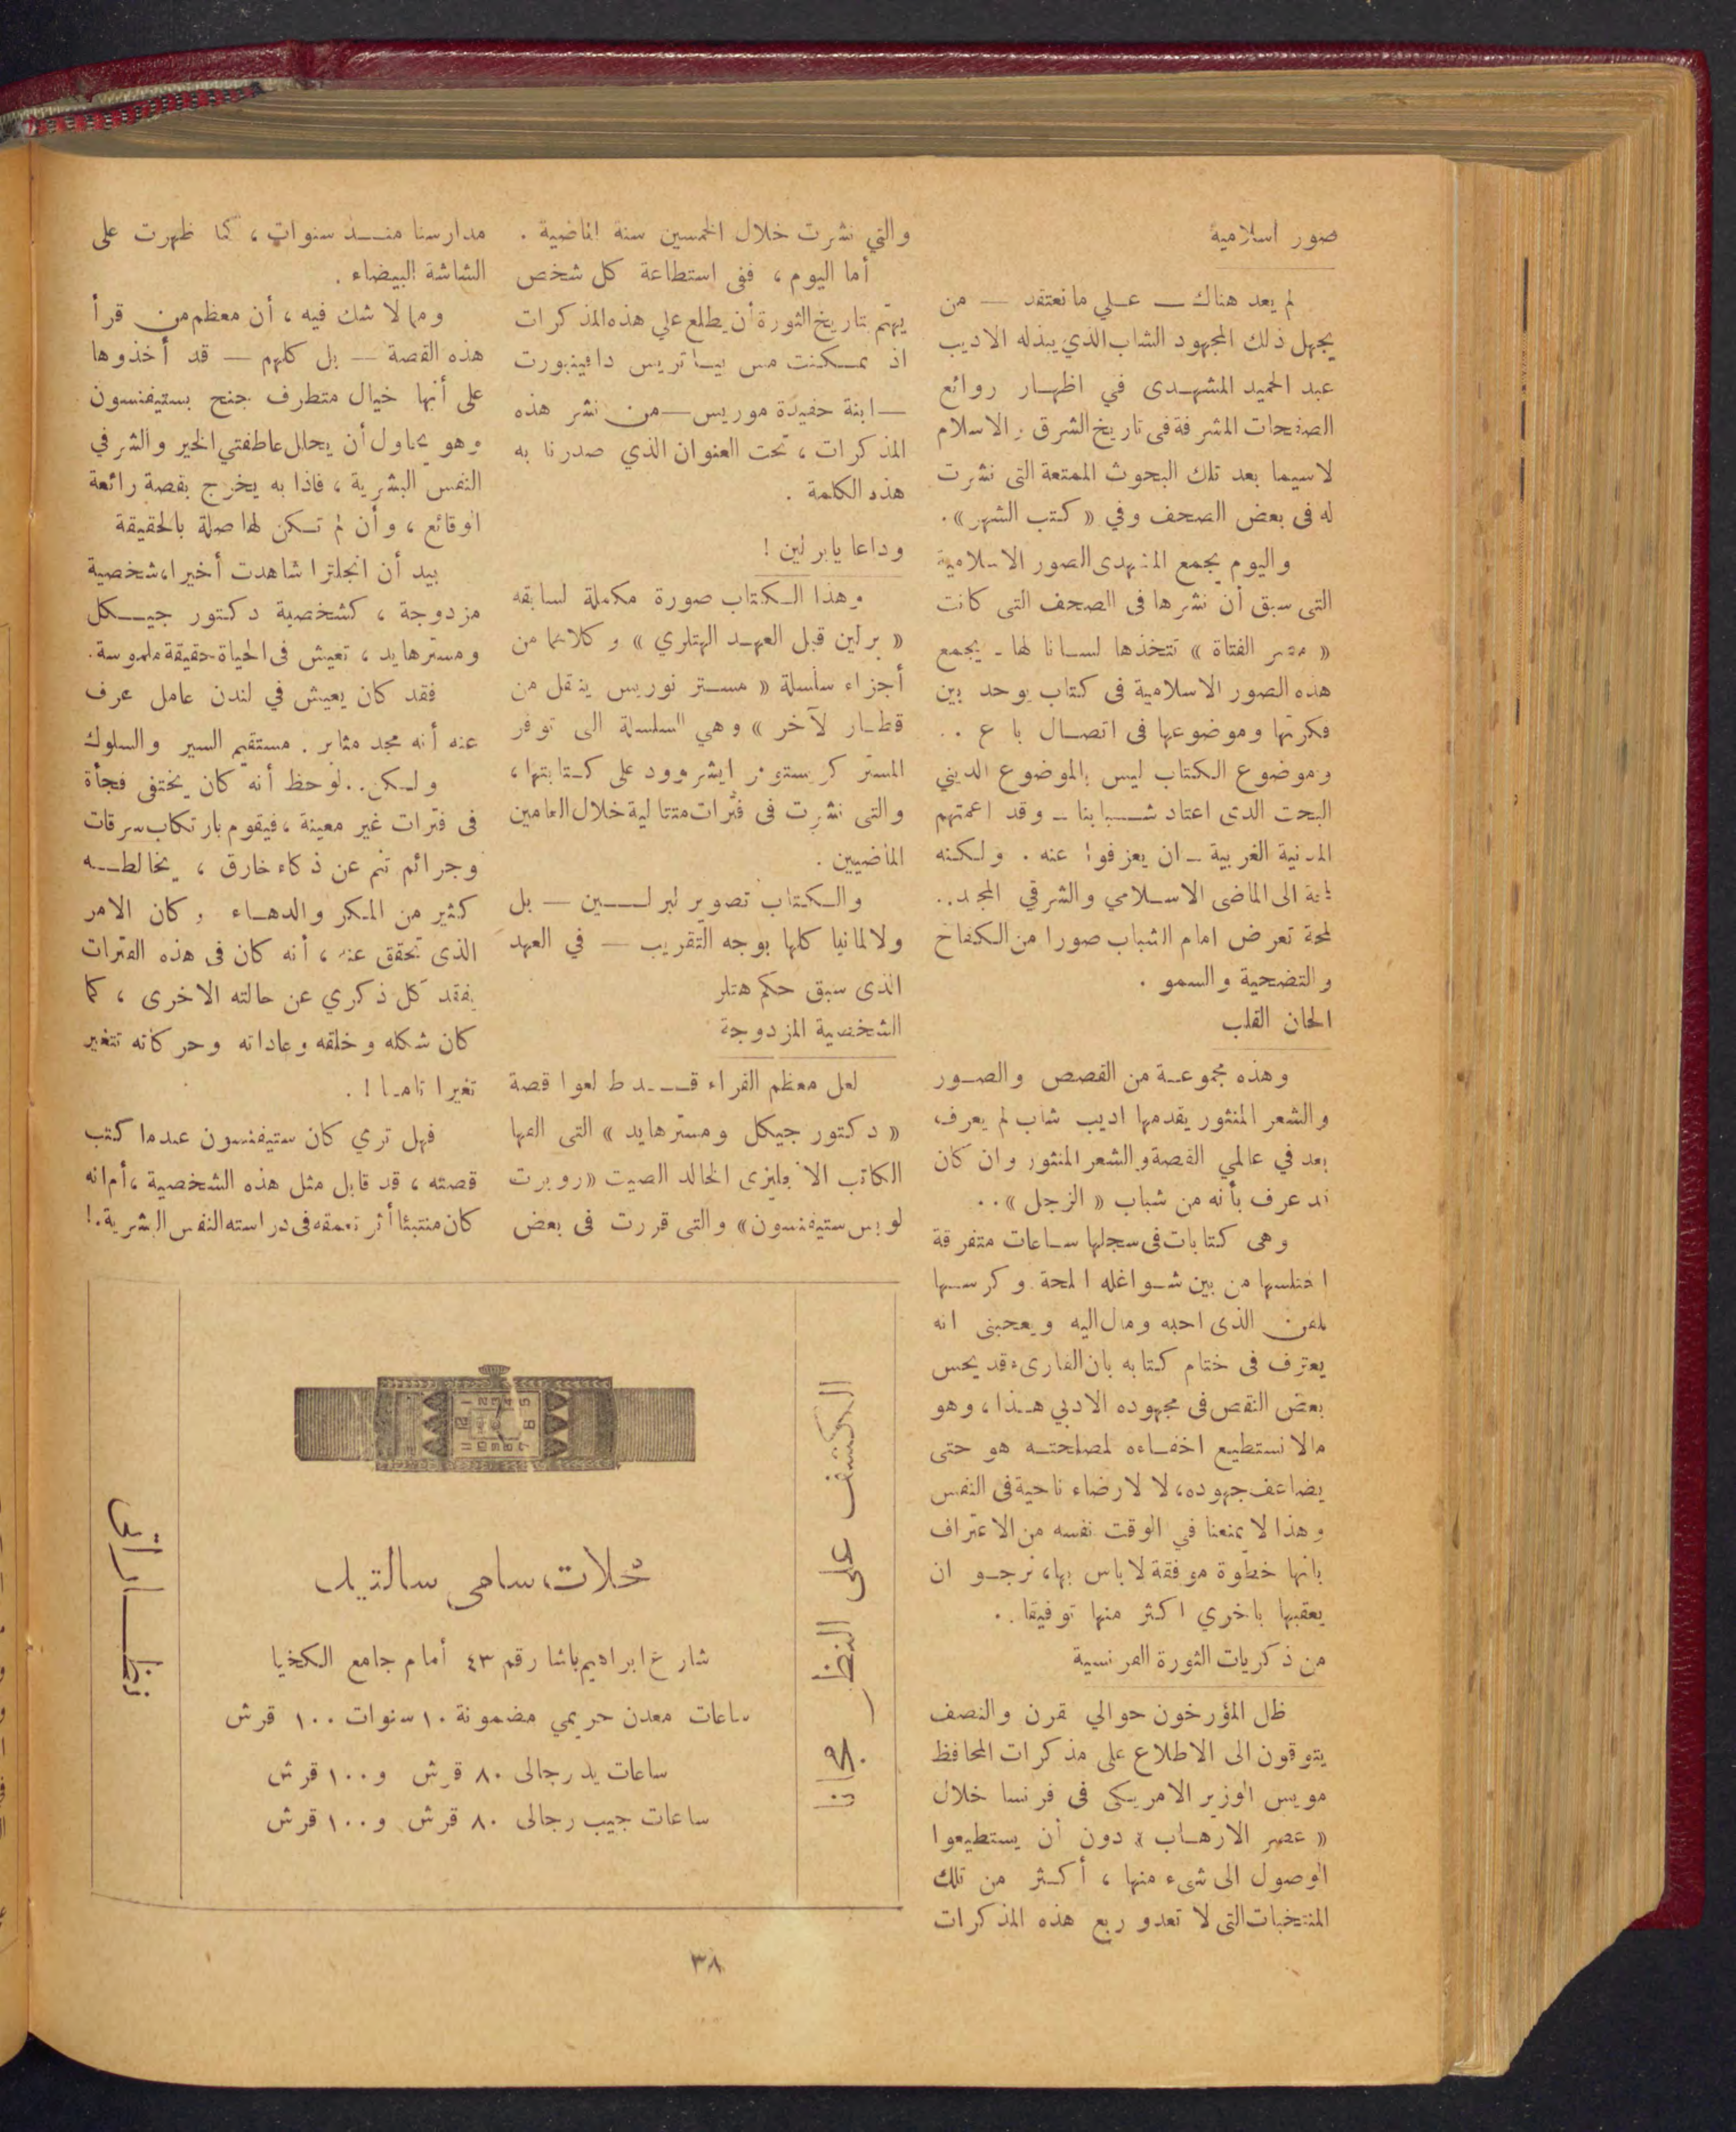 صور اسلامية
لم يعد هناك — على ما نعتقد — من
يجهل ذلك المجهود الشاب الذي يبذله الاديب
عبد الحميد المشهدى في اظهار روائع
الصفحات المشرفة فى تاريخ الشرق والاسلام
لاسيما بعد تلك البحوث الممتعة التى نشرت
له فى بعض الصحف وفي « كتب الشهر » .
واليوم يجمع المشهدى الصور الاسلامية
التى سبق أن نشرها فى الصحف التى كانت
« مصر الفتاة » تتخذها لسانا لها ـ يجمع
هذه الصور الاسلامية فى كتاب يوحد بين
فكرتها وموضوعها فى اتصال با ع . .
وموضوع الكتاب ليس بالموضوع الديني
البحت الذى اعتاد شبابنا ـ وقد اعمتهم
المدنية الغربية ـ ان يعزفوا عنه . ولكنه
الى الماضى الاسلامي والشرقي المجيد . .
لمحة تعرض امام الشباب صورا من الكفاح
والتضحية والسمو .
الحان القلب
وهذه مجموعة من القصص والصور
والشعر المنثور يقدمها اديب شاب لم يعرف
بعد في عالمي القصة والشعر المنثور وان كان
قد عرف بأنه من شباب « الزجل » . .
وهى كتابات فى سجلها ساعات متفرقة
اختلسها من بين شواغله الملحة وكرسها
للفن الذى احبه ومال اليه ويعجبنى انه
يعترف فى ختام كتابه بان القارىء قد يحس
بعض النقص فى مجهوده الادبي هذا ، وهو
مالا نستطيع اخفاءه لمصلحته هو حتى
يضاعف جهوده ، لا لارضاء ناحية فى النفس
وهذا لا يمنعنا في الوقت نفسه من الاعتراف
بانها خطوة موفقة لا باس بها ، نرجو ان
يعقبها باخري اكثر منها توفيقا . .
من ذكريات الثورة الفرنسية
ظل المؤرخون حوالي قرن والنصف
يتوقون الى الاطلاع على مذكرات المحافظ
مويس الوزير الامريكى فى فرنسا خلال
« عصر الارهاب » دون أن يستطيعوا
الوصول الى شىء منها ، أكثر من تلك
المنتخبات التى لا تعدو ربع هذه المذكرات
والتي نشرت خلال الخمسين سنة الماضية .
أما اليوم ، ففى استطاعة كل شخص
يهتم بتاريخ الثورة أن يطلع على هذه المذكرات
اذ تمكنت مس بياتريس دافينبورت
— ابنة حفيدة موريس — من نشر هذه
المذكرات ، تحت العنوان الذي صدرنا به
هذه الكلمة .
وداعا يا برلين !
وهذا الكتاب صورة مكملة لسابقه
« برلين قبل العهد الهتلري » وكلاهما من
أجزاء سلسلة « مستر نوريس ينقل من
قطار لآخر » وهي السلسلة التى توفر
المستر كرستوفر ايشروود على كتابتها ،
والتى نشرت فى فترات متتالية خلال العامين
الماضيين .
والكتاب تصوير لبرلين — بل
ولالمانيا كلها بوجه التقريب — في العهد
الذى سبق حكم هتلر
الشخصية المزدوجة
لعل معظم القراء قد طالعوا قصة
« دكتور جيكل ومستر هايد » التى الفها
الكاتب الانجليزى الخالد الصيت « روبرت
لويس ستيفنسون » والتى قررت فى بعض
مدارسنا منذ سنوات ، كما ظهرت على
الشاشة البيضاء .
ومما لا شك فيه ، أن معظم من قرأ
هذه القصة — بل كلهم — قد أخذوها
على أنها خيال متطرف جنح بستيفنسون
وهو يحاول أن يحلل عاطفتي الخير والشر في
النفس البشرية ، فاذا به يخرج بقصة رائعة
الوقائع ، وأن لم تكن لها صلة بالحقيقة
بيد أن انجلترا شاهدت أخيرا ، شخصية
مزدوجة ، كشخصية دكتور جيكل
ومستر هايد ، تعيش فى الحياة حقيقة ملموسة .
فقد كان يعيش في لندن عامل عرف
عنه أنه مجد مثابر . مستقيم السير والسلوك
ولكن . . لوحظ أنه كان يختفى فجأة
فى فترات غير معينة ، فيقوم بارتكاب سرقات
وجرائم تنم عن ذكاء خارق ، يخالطه
كثير من المكر والدهاء وكان الامر
الذى تحقق عنه ، أنه كان فى هذه الفترات
يفقد كل ذكري عن حالته الاخرى ، كما
كان شكله وخلقه وعاداته وحركاته تتغير
تغيرا تاما ! .
فهل تري كان ستيفنسون عندما كتب
قصته ، قد قابل مثل هذه الشخصية ، أم انه
كان متنبئا أثر تعمقه فى دراسته النفس البشرية . !
الكشف على النظر مجانا
محلات سامى سالتيل
شارع ابراهيم باشا رقم ٤٣ أمام جامع الكخيا
ساعات معدن حريمي مضمونة ١٠ سنوات ١٠٠ قرش
ساعات يد رجالى ٨٠ قرش و ١٠٠ قرش
ساعات جيب رجالى ٨٠ قرش و ١٠٠ قرش
نظارات
٣٨